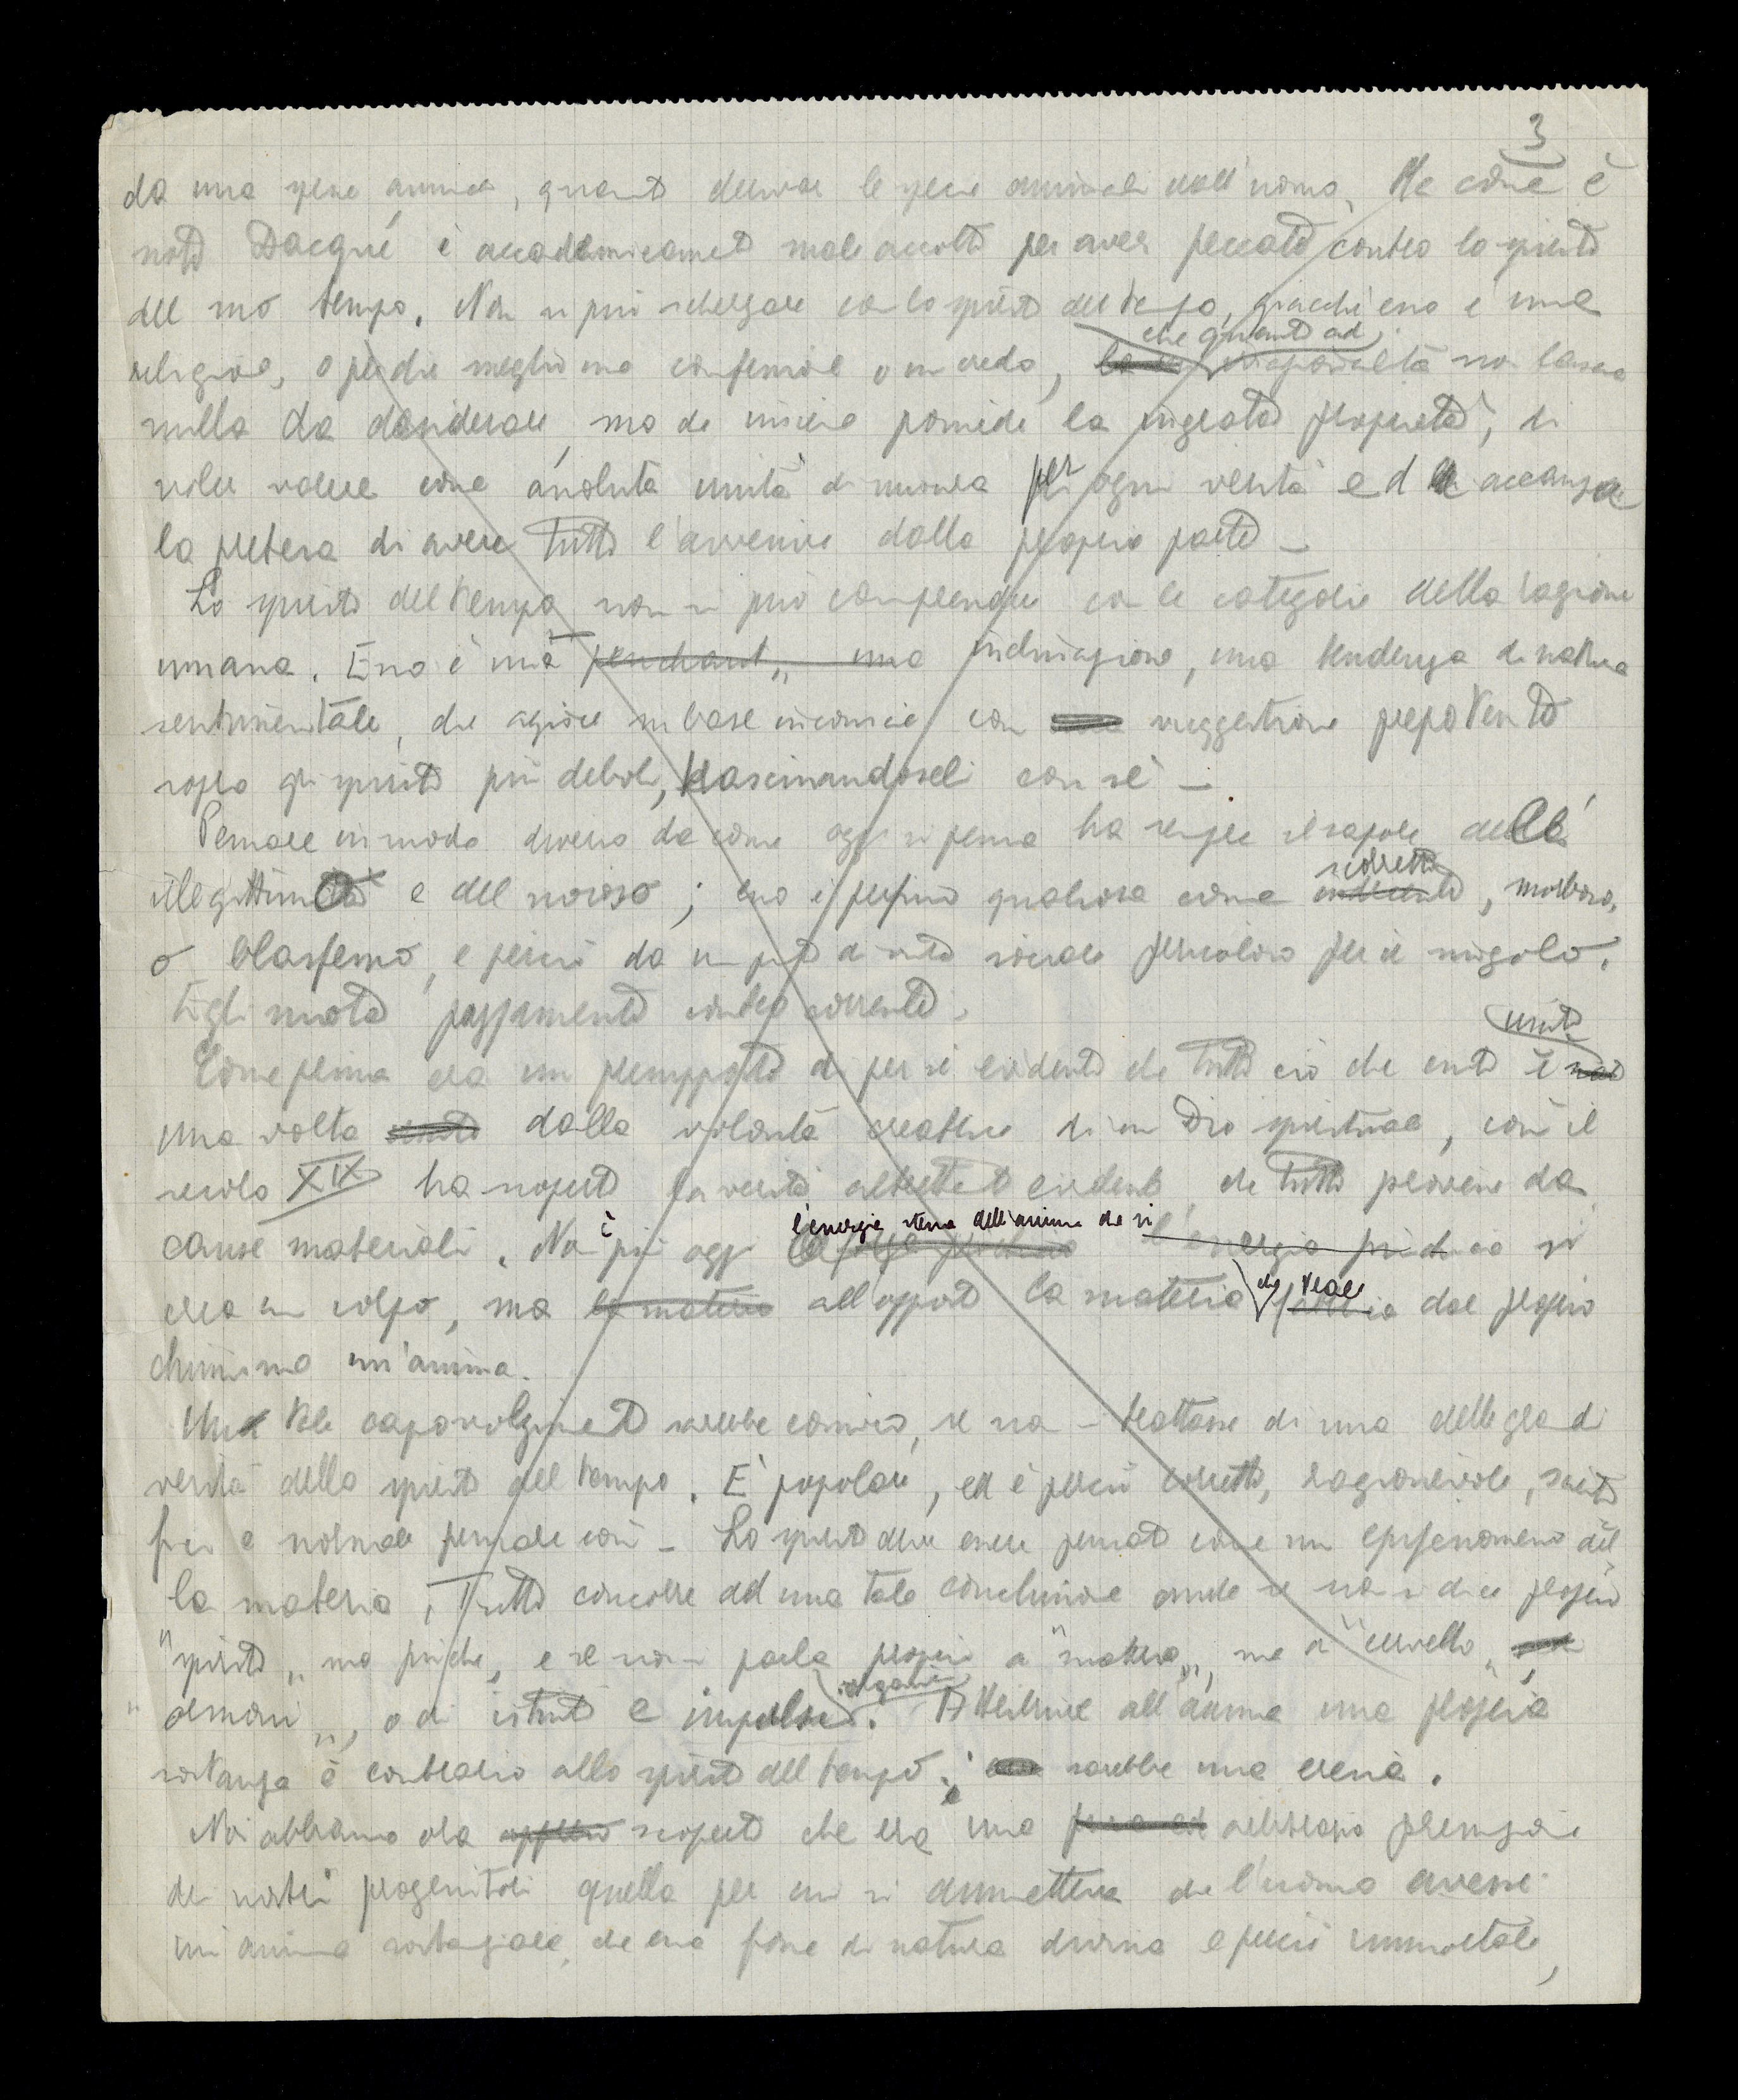 3
da una specie animale, quanto derivare le specie animali dall'uomo. Ma come è
noto Dacqué è accademicamente male accolto per aver peccato contro lo spirito
del suo tempo. Non si può scherzare con lo spirito del tempo, giacché esso è una
che quanto ad
religione, o per dir meglio una confessione o un credo, irrazionalità non lascia
nulla da desiderare, ma che insieme possiede la ingrata proprietà, di
voler valere come assoluta unità di misura per ogni verità ed accampa
la pretesa di avere tutto l'avvenire dalla propria parte –
Lo spirito del tempo non si può comprendere con le categorie della ragione
umana. Esso è una penchant„ una inclinazione, una tendenza di natura
sentimentale, che agisce su base inconscia con suggestione prepotente
sopra gli spiriti più deboli, trascinandoseli con sé –
Pensare in modo diverso da come oggi si pensa ha sempre il sapore della
scorretto
illegittimità e del noioso; esso è perfino qualcosa come indecente, morboso,
o blasfemo, e perciò da un punto di vista sociale pericoloso per il singolo.
Egli nuota pazzamente contro corrente.
uscito
Come prima era un presupposto di per sé evidente che tutto ciò che esiste è nato
una volta dalla volontà creatrice di un Dio spirituale, così il
secolo XIX ha scoperto la verità altrettanto evidente che tutto proviene da
l'energia stessa dell'anima che si
cause materiali. Non è più oggi la forza psichica l'energia psichica si
che trae
crea un corpo, ma la materia all'opposto la materia dal proprio
chimismo un'anima.
Un tale capovolgimento sarebbe comico, se non – trattasse di una delle grandi
verità dello spirito del tempo. È popolare, ed è perciò corretto, ragionevole, scienti
fico e normale pensare così – Lo spirito deve essere pensato come un epifenomeno del
la materia. Tutto concorre ad una tale conclusione anche se non si dice proprio
"spirito„ ma psiche, e se non parla proprio di "materia„, ma di "cervello„
organici
"ormoni„, o di istinti e impulsi. Attribuire all'anima una propria
sostanza è contrario allo spirito del tempo; sarebbe una eresia.
Noi abbiamo ora appreso scoperto che era una arbitraria presunzione
dei nostri progenitori quella per cui si ammetteva che l'uomo avesse
un'anima sostanziale, che essa fosse di natura divina e perciò immortale,